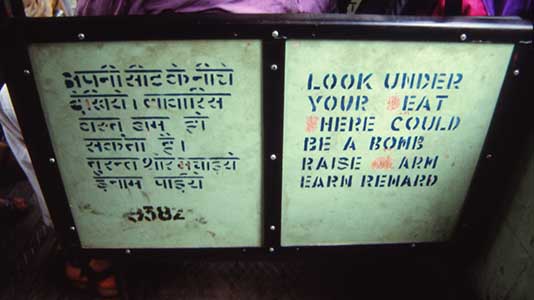 अपनी सीट के नीचे
देखिये। लावारिस
वस्तु बम हो
सकता है।
तुरन्त शोर मचाइये
ईनाम पाइये
LOOK UNDER
YOUR SEAT
THERE COULD
BE A BOMB
RAISE ALARM
EARN REWARD